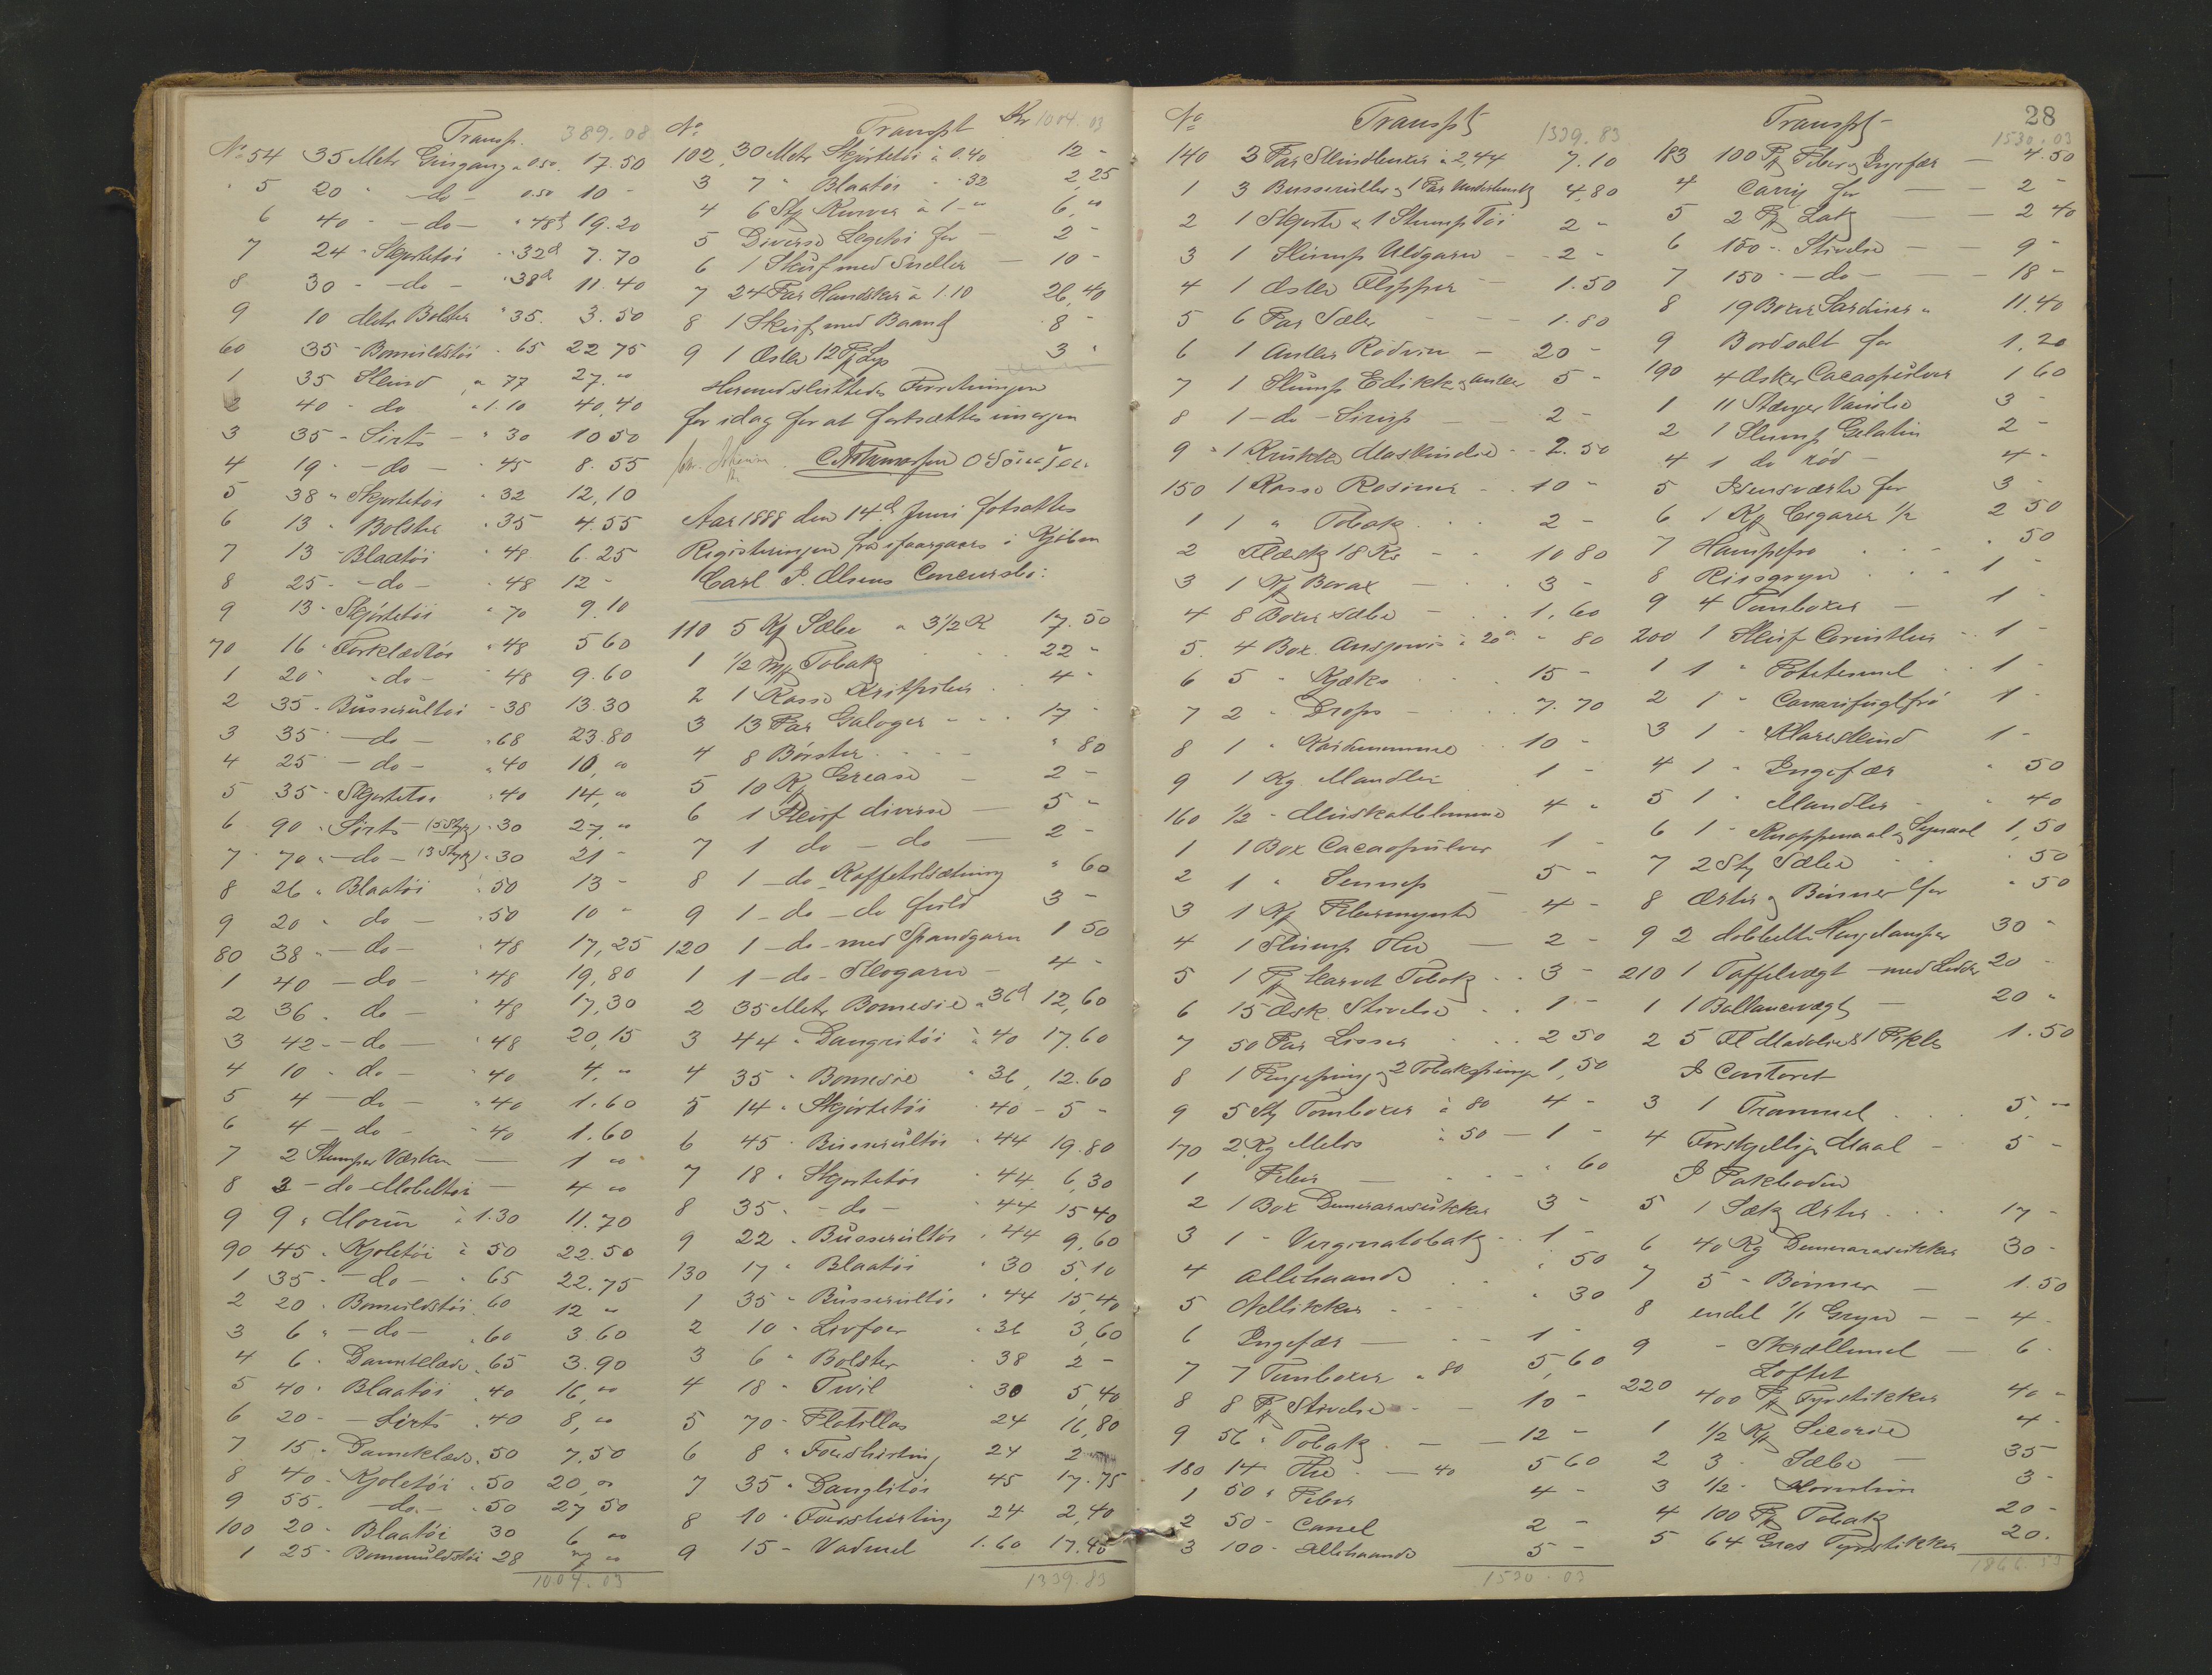 Transp. 389.08
No 54 35 Metr Gingang a 0.50 17.50
5 20 " - do - 0.50 10 -
6 40 - - do - " 48 19.20
7 24 " Skjortetøi " 32 7.70
8 30 - - do - " 38 11.40
9 10 Metr Bolster " 35. 3.50
60 35 - Bomuldstøi " 65 22 75
1 35 Sleind " 77 27. "
2 40 - do " 1.10 40,40
3 35 - Sirts - " 30 10 50
4 19 - - do - " 45 8.55
5 38 " Skjortetøi " 32 12,10
6 13 " Bolster " 35 4.55
7 13 - Blaatøi " 48 6.25
8 25 - - do - " 48 12 -
9 13 - Skjørtetøi " 70 9.10
70 16 " Forklædtøi " 48 5 60
1 20 " - do - " 48 9.60
2 35 - Busserultøi - 38 13.30
3 35 - - do - " 68 23.80
4 25 - - do - " 40 10, "
5 35 - Skjortetøi " 40 14, "
6 90 " Sirts (5 Styk) " 30 27, "
7 70 " - do - (3 Styk) " 30 21 -
8 26 " Blaatøi " 50 13 -
9 20 " do - " 50 10 -
80 38 " - do - " 48 17,25
1 40 - do - " 48 19,80
2 36 " do - " 48 17,30
3 42 - - do - " 48 20,15
4 10 " do - " 40 4, "
5 4 - do - " 40 1.60
6 4 - do - " 40 1.60
7 2 Stumper Værken - 1 "
8 3 - do - Mobeltøi - 4 "
9 9 " Morin à 1.30 11.70
90 45 " Kjoletøi à 50 22.50
1 35 - - do - " 65 22.75
2 20 " Bomuldstøi " 60 12 "
3 6 " - do - " 60 3.60
4 6 " Dameklæde " 65 3.90
5 40 " Blaatøi " 40 16, "
6 20 - - Sirts " 40 8, "
7 15 " Dameklæde " 50 7.50
8 40 - Kjoletøi " 50 20, "
9 55 - - do - " 50 27 50
100 20 - Blaatøi 30 6 "
1 25 - Bommuldstøi 28 7 "
1004.03
No Transpt Kr 1004.03
102 30 Metr Skjørtetøi à 0.40 12 -
3 7 " Blaatøi " 32 2,25
4 6 Stk Kurver à 1 - " 6, "
5 Diverse Legetøi for - 2 -
6 1 Skuf med Sneller - 10 -
7 24 Par Handsker à 1.10 26,40
8 1 Skuf med Baand 8 -
9 1 Æske 12 Pk Lys 3 "
Hermed sluttedes Forretningen
for idag for at fortsættes imorgen
Aar 1888 den 14d Juni fotsattes
Registeringen fra iforgaars i Kjøbm
Carl P. Olsens Concursbo:
110 5 Kg Sæbe a 3 1/2 K 17.50
1 1/2 Mk Tobak 22 -
2 1 Kasse Kritpiber 4 "
3 13 Par Galoger - - - 17 -
4 8 Børster " 80
5 10 K Grease - 2 -
6 1 Skuf diverse - 5 -
7 1 do - do - 2 -
8 1 - do - Kaffetilsætning " 60
9 1 - do - do fuld 3 -
120 1 - do - med Spandgarn 1 50
1 1 - do - Skogarn - 4 -
2 35 Metr Bomesie " 36 12,60
3 44 " Dangritøi à 40 17.60
4 35 " Bomesie " 36, 12.60
5 14 " Skjørtetøi " 40 - 5 -
6 45 - Busserultøi " 44 19.80
7 18 " Skjortetøi " 44 6,30
8 35 " - do - " 44 15 40
9 22 " Busserultøi " 44 9,60
130 17 " Blaatøi " 30 5,10
1 35 " Busserultøi " 44 15,40
2 10 " Livfoer " 36 3,60
3 6 " Bolster " 38 2 -
4 18 " Twil " 30 5,40
5 70 - Platillas 24 16,80
6 8 " Foershirting 24 2
7 35 " Danglitøi 45 17.75
8 10 " Foershirting 24 2,40
9 15 - Vadmel 1.60 17.40
1339.83
No Transpt 1339.83
140 3 Par Skindbuxer à 2,44 7.10
1 3 Busseruller & 1 Par Underbenkl 4,80
2 1 Skjorte & 1 Stump Tøi 2 -
3 1 Slump Uldgarn - - 2 -
4 1 Æske Æspper - 1.50
5 6 Par Sæler - - - 1.80
6 1 Anker Rødvin - 20 -
7 1 Slump Edikk & Anker 5 -
8 1 - do - Sirup - - 2 -
9 " 1 Krukke Maskinolie - - 2.50
150 1 Kasse Rosiner - . 10 -
1 1 " Tobak . . 2 -
2 Flæsk 18 Ko - - 10 80
3 1 Kg Borax - . . 3 -
4 8 Boxer Sæbe - . . 1,60
5. 4 Box. Ansjovis à 20 " 80
6 5 " Kjæks . . 15 -
7 2 " Drops - . . 7.70
8 1 " Kardemomme . . 10 -
9 1 Kg Mandler . 1 -
160 1/2 - Muskatblomme 4 "
1 1 Box Cacaopulver 1 -
2 1 " Sennep - 5 -
3 1 Kg Pebermynte - 4 -
4 1 Slump The - 2 -
5 1 Pk karvet Tobak . . 3 -
6 15 Æsk. Stivelse . . 1 -
7 50 Par Lisser . . 2 50
8 1 Pengepung & 2 Tobakspunge 1,50
9 5 Stk Tomboxer à 80 4 -
170 2 Kg Melis à 50 - 1 -
1 Peber - - " 60
2 1 Box Demerarasukker 3 -
3 1 - Virginatobak . 1 -
4 Allehaande . . " 50
5 Nellikker . - - " 30
6 Ingefær - - - 1 -
7 7 Tomboxer a 80 5,60
8 8 Pk Stivelse - - 10 -
9 56 " Tobak . - - 12 -
180 14 " The . - 40 5 60
1 50 " Peber 4 -
2 50 - Canel 2 -
3 100 - Allehaande 5 -
1530.03
28
Transpt 1530.03
183 100 Pk Peber & Ingefær - 4.50
4 Carry for - - 2 -
5 2 Pk Lak - - 2 40
6 100 - Stivelse - - 9 -
7 150 - - do - - - 18 -
8 19 Boxer Sardiner " 11.40
9 Bordsalt for 1,20
190 4 Æsker Cacaopulver 1 60
1 11 Stænger Vanilie 3 -
2 1 Slump Gelatin 2 -
4 1 do rød - 4 -
5 Isensværte for 3 -
6 1 Kg Cigarer 1/2 2 50
7 Hampefrø . . - " 50
8 Risgryn . . . 1 -
9 4 Tomboxer - 1 -
200 1 Skuf Corinther . . 1 -
1 1 " Potetesmel . . 1 -
2 1 " Canarifuglfrø 1 -
3 1 - Klareskind 1 -
4 1 " Ingefær " 50
5 1 " Mandler - " 40
6 1 - Knappenaal & Synaal 1,50
7 2 Stk Sæber - " 50
8 Ærter & Bønner for " 50
9 2 dobbelte Hengelamper 30 -
210 1 Taffelvægt - med Lodder 20 -
1 1 Ballancevægt - 20 "
2 5 Fl Madolie & 1 Pikls 1.50
I Contoret
3 1 Trommel . . . 5, "
4 Forskjellige Maal - 5 -
I Pakboden
5 1 Sæk Ærter . . . 17 -
6 40 Kg Demerarasukker 30 -
7 5 - Bønner - 1.50
8 endel 1/1 Gryn - - 4 -
9 - Skrællemel - 6 -
Loftet
220 400 Pk Fyrstikker 40 "
1 1/2 Kg Sicorie 4 -
2 3 - Sæbe - 35 -
3 1/2 - Hornlim 3 -
4 100 Pk Tobak 20 -
5 64 Gros Fyrstikker 20.
1866.53